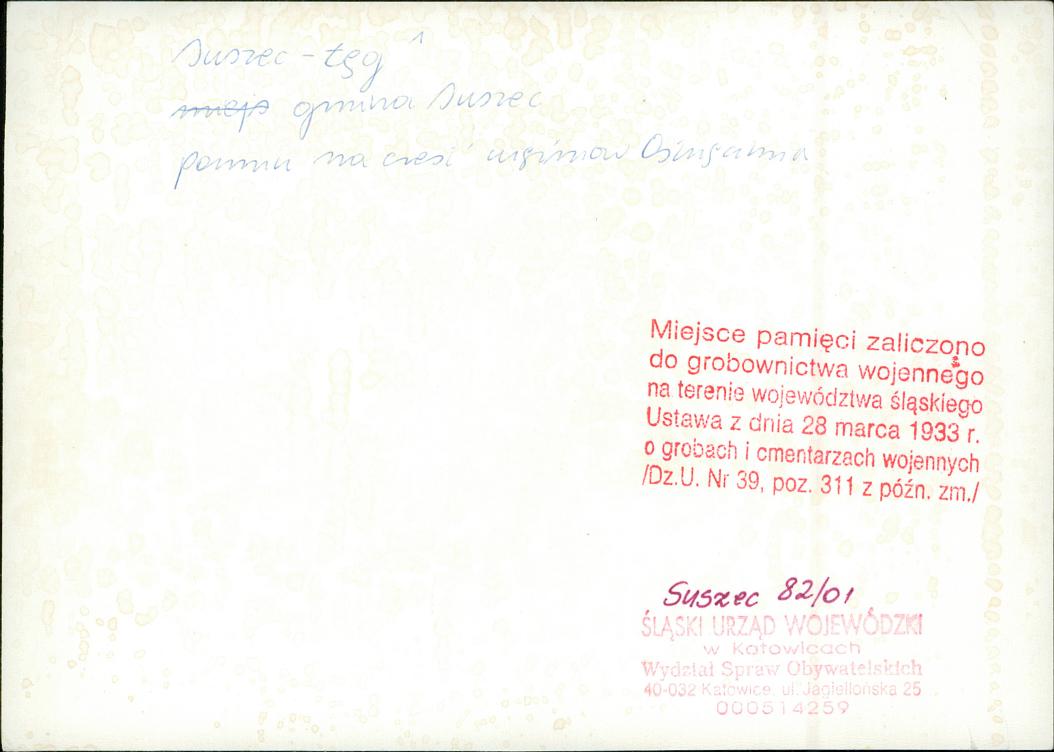 Suszec - Łęg
gmina Suszec
pomnik na cześć więźniów Oświęcimia
Miejsce pamięci zaliczono
do grobownictwa wojennego
na terenie województwa śląskiego
Ustawa z dnia 28 marca 1933 r.
o grobach i cmentarzach wojennych
/Dz.U. Nr 39, poz. 311 z późn. zm./
Suszec 82/01
ŚLĄSKI URZĄD WOJEWÓDZKI
w Katowicach
Wydział Spraw Obywatelskich
40-032 Katowice, ul. Jagiellońska 25
000514259